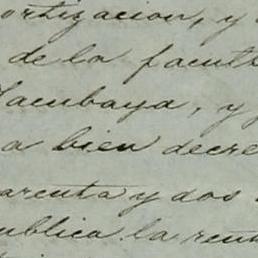 ortizacion, y
de la facult
Tacubaya, y
a bien decre
arenta y dos
ublica la ren